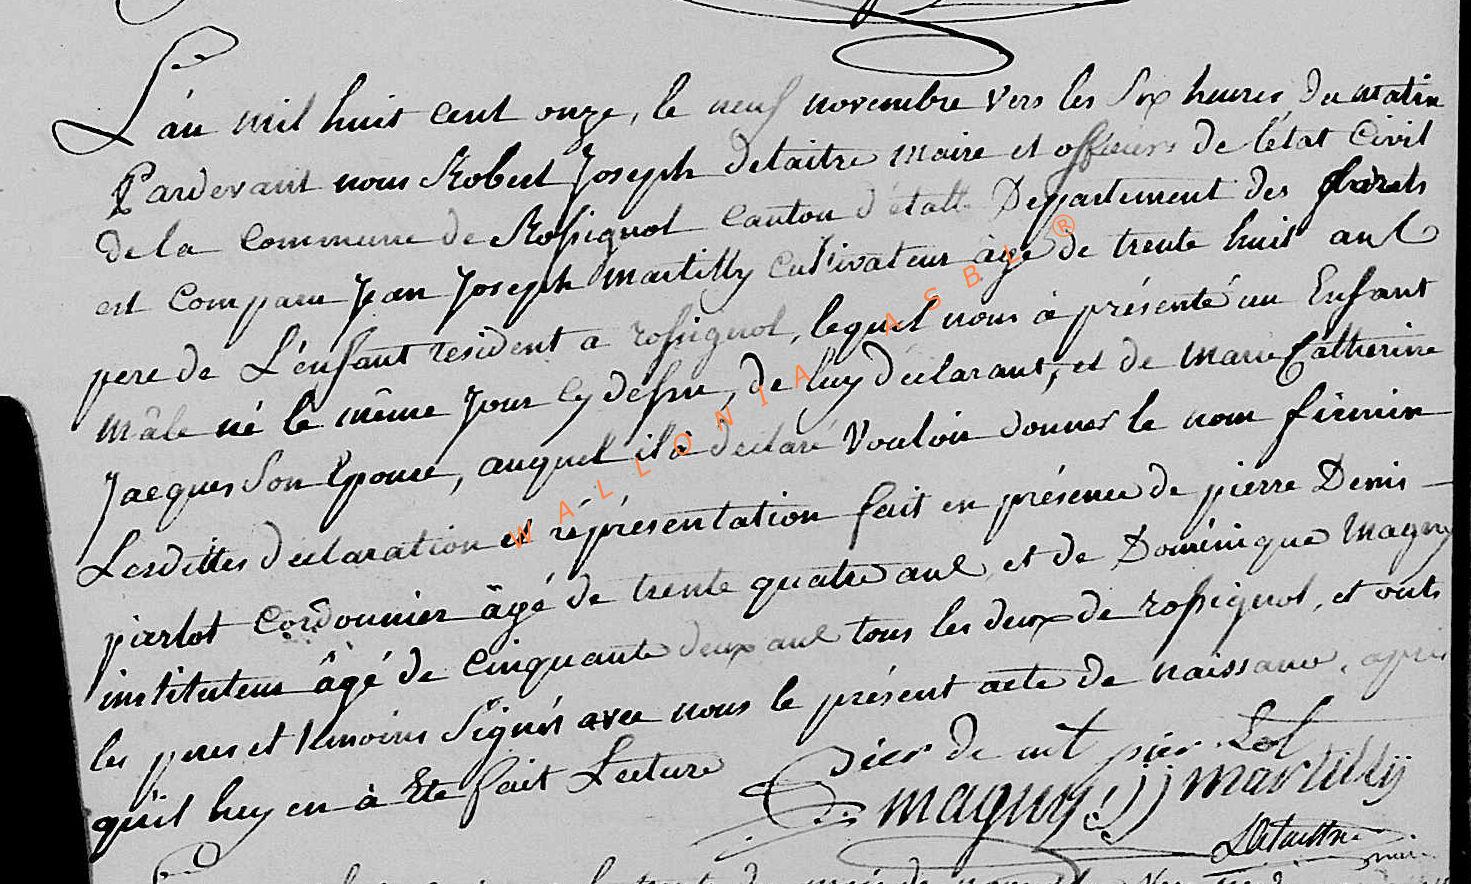 L'an mil huit cent onze, le neuf novembre vers les six heures du matin
Pardevant nous Robert Joseph detaitre maire et officiers de l'état Civil
de la Commune de Rossignol Canton d'étalle Departement des forêts
est comparu Jean Joseph Martilly cultivateur âgé de trente huit ans
pere de L'énfant resident a rossignol, lequel nous à présenté un Enfant
mâle né le même Jour cy dessu, de luy déclarant, et de Marie Catherine
Jacques Son Epouse, auquel il à déclaré Vouloir donner le nom firmin
Lesdittes déclaration et réprésentation fait en présence de pierre Denis
pierlot Cordonnier âgé de trente quatre ans et de Dominique Magny
instituteur âgé de Cinquante deux ans tous les deux de rossignol, et onts
les peres et témoins Signés avec nous le présent acte de naissance, après
qu'il luy en à été fait Lecture
pier
magny JJ martilly
Detaittre
maire
WALLONIA ASBL ®